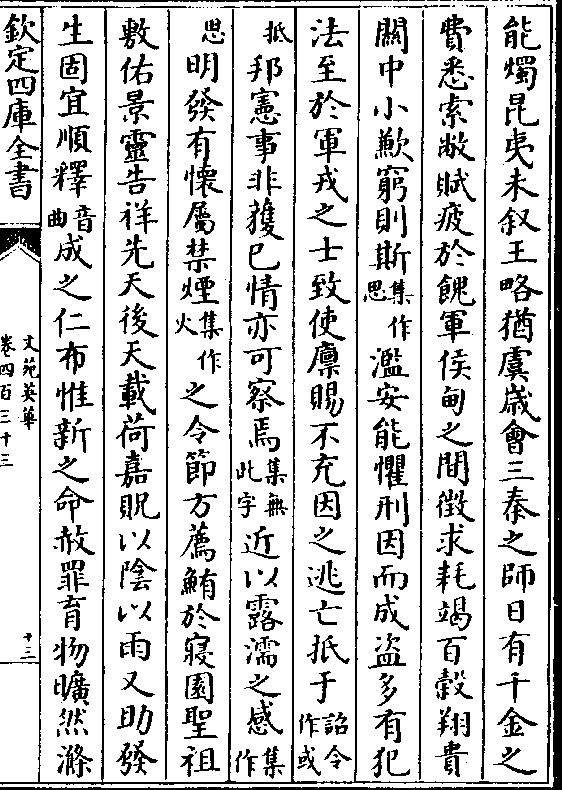 能燭昆夷未叙王略猶虞嵗會三秦之師日有千金之
費悉索敝賦疲於餽軍侯甸之間徴求耗竭百穀翔貴
關中小歉窮則斯集作思濫安能懼刑因而成盜多有犯
法至於軍戎之士致使廪賜不充因之逃亡抵于詔令作或
抵邦憲事非獲已情亦可察焉集無此字近以露濡之感集作
思明發有懷屬禁煙集作火之令節方薦鮪於寢園聖祖
敷佑景靈告祥先天後天載荷嘉貺以陰以雨又助發
生固宜順釋音曲成之仁布惟新之命赦罪育物曠然滌
欽定四庫全書
文苑英華
卷四百三十三
十三